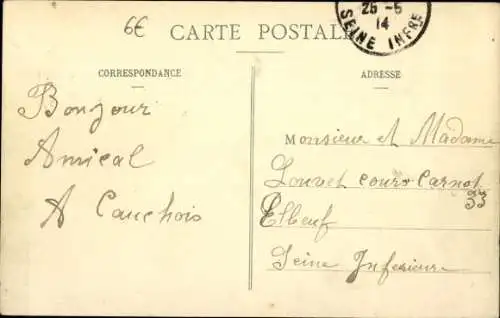 6€
CARTE POSTALE
25-5
14
SEINE INFRE
CORRESPONDANCE
ADRESSE
Bonjour
Amical
A Cauchois
Monsieur et Madame
Louvet cours Carnot
33
Elbeuf
Seine Inferieure